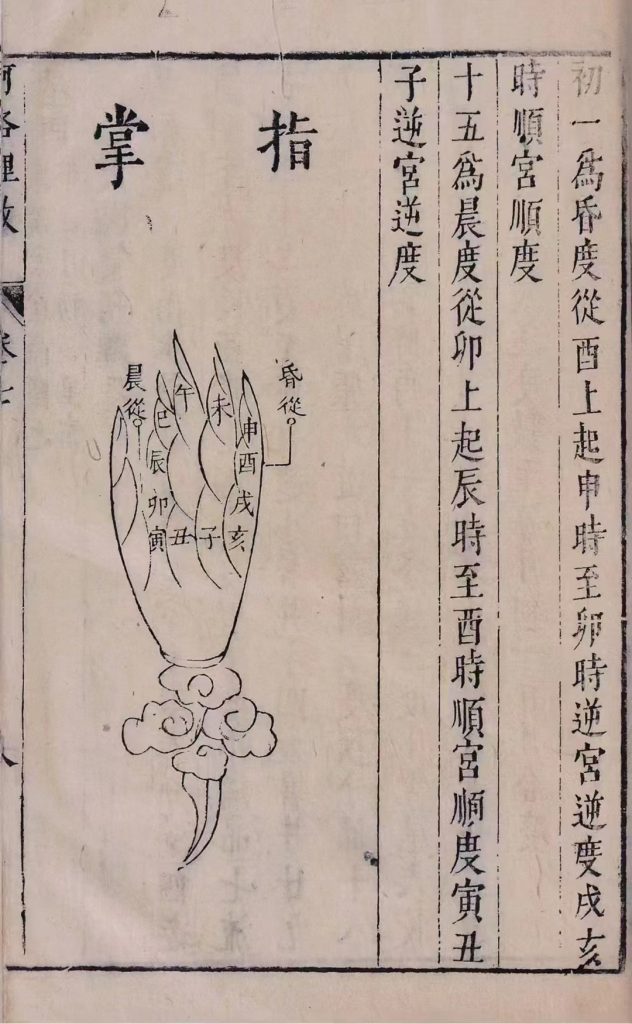 初一爲昏度從酉上起申時至卯時逆宮逆度戌亥
時順宮順度
十五爲晨度從卯上起辰時至酉時順宮順度寅丑
子逆宮逆度
指掌
昏從
申
酉
戌
亥
未
子
午
丑
巳
辰
卯
寅
晨從
河洛理數
卷七
八